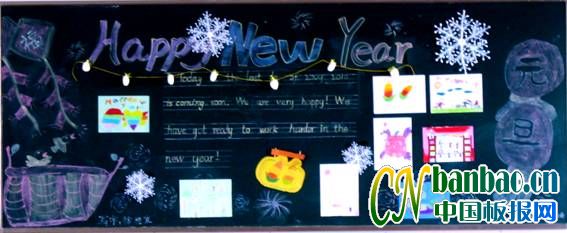 Happy New Year
Today is the last of 2009, 2010
is coming soon. We are very happy! We
have got ready to work harder in the
new year!
元
旦
CNbanbao.cn
中国板报网